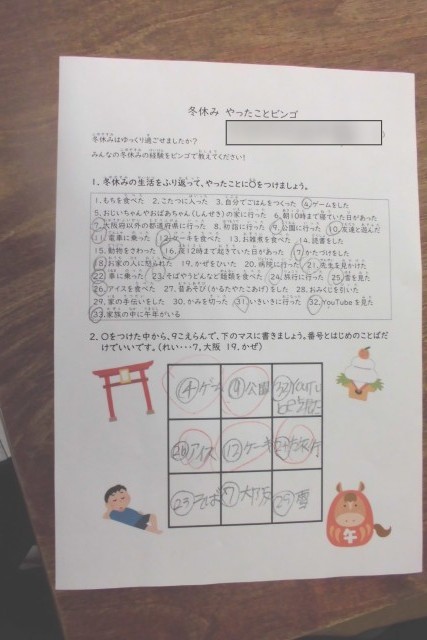 冬休み やったことビンゴ
冬休みはゆっくり過ごせましたか?
みんなの冬休みの経験をビンゴで教えてください!
1. 冬休みの生活をふり返って、やったことに○をつけましょう。
1. もちを食べた 2. こたつに入った 3. 自分でごはんをつくった 4. ゲームをした
5. おじいちゃんやおばあちゃん(しんせき)の家に行った 6. 朝10時まで寝ていた日があった
7. 大阪府以外の都道府県に行った 8. 初詣に行った 9. 公園に行った 10. 友達と遊んだ
11. 電車に乗った 12. ケーキを食べた 13. お雑煮を食べた 14. 読書をした
15. 動物をさわった 16. 夜12時まで起きていた日があった 17. かたづけをした
18. お家の人に怒られた 19. かぜをひいた 20. 病院に行った 21. 先生を見かけた
22. 車に乗った 23. そばやうどんなど麺類を食べた 24. 旅行に行った 25. 雪を見た
26. アイスを食べた 27. 昔あそび(かるたやたこあげ)をした 28. おみくじを引いた
29. 家の手伝いをした 30. かみを切った 31. いきいきに行った 32. YouTubeを見た
33. 家族の中に午年がいる
2. ○をつけた中から、9こえらんで、下のマスに書きましょう。番号とはじめのことばだ
けでいいです。(れい…7. 大阪 19. かぜ)
4 ゲーム 9 公園 32 YouTu
beを見た
26 アイス 12 ケーキ 24 旅行
23 そば 7 大阪 25 雪
午